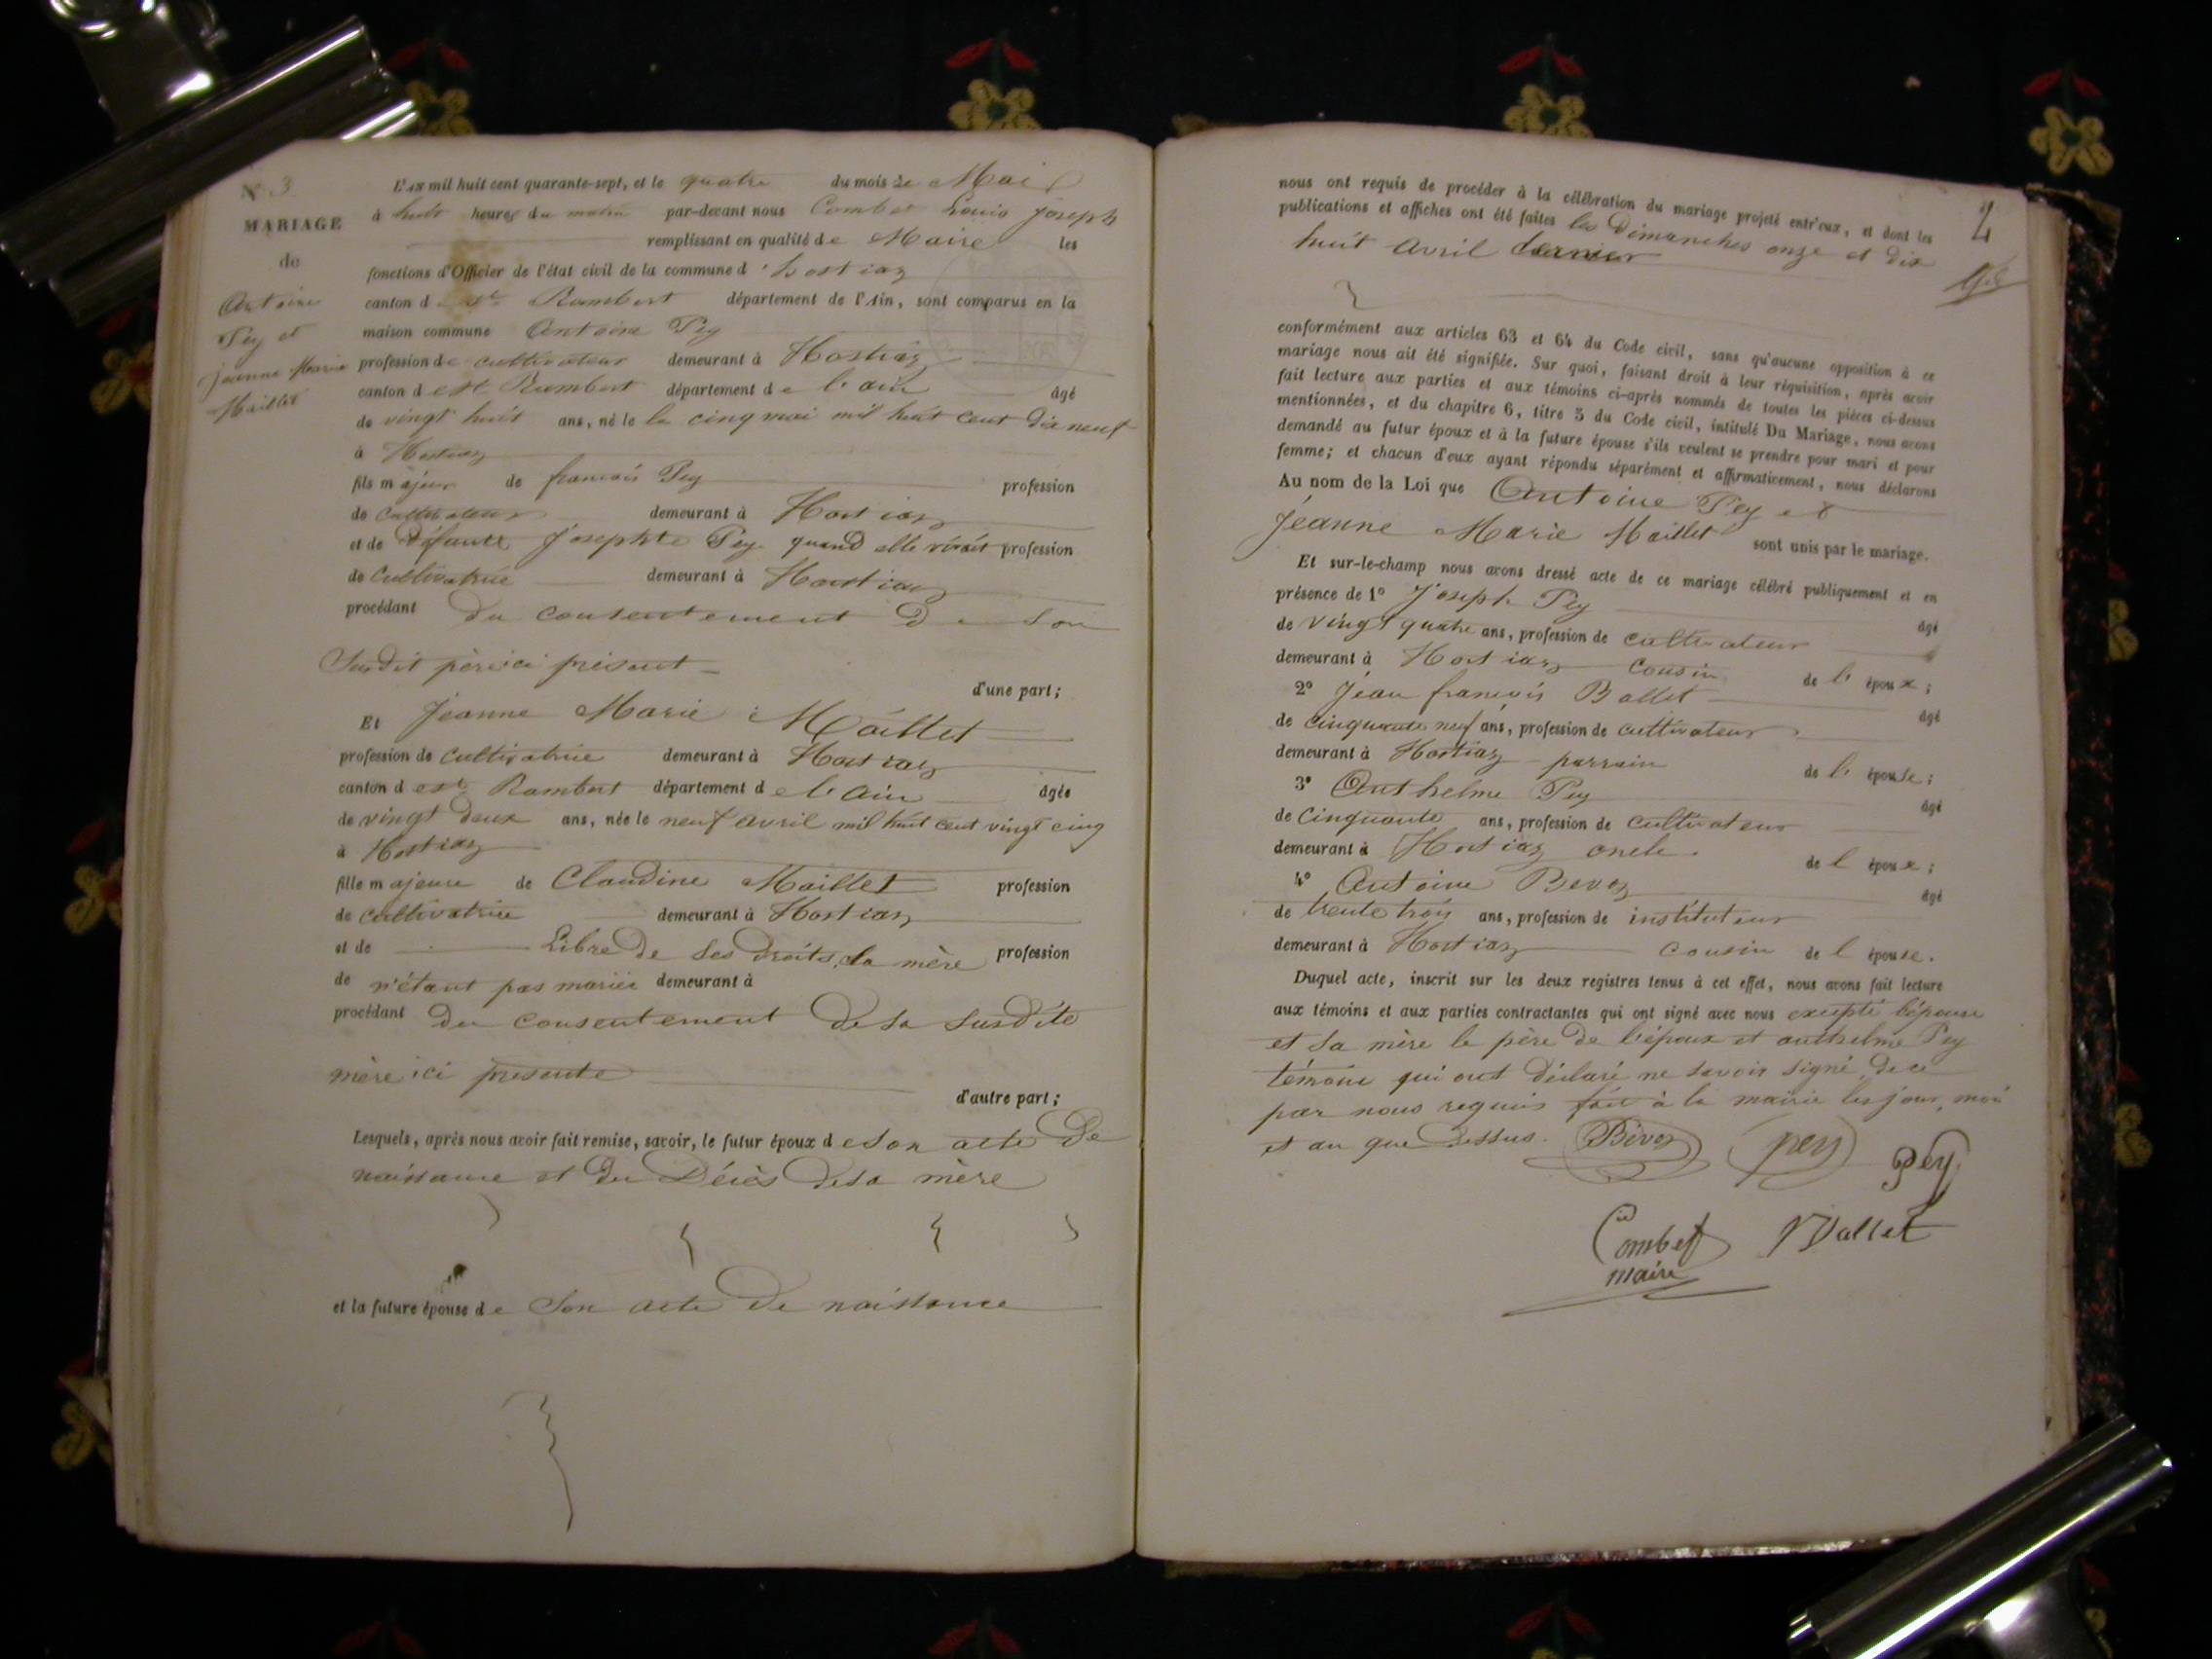 N° 3.
MARIAGE
de
Antoine
Pey et
Jeanne Marie
Maillet
L'an mil huit cent quarante-sept, et le quatre du mois de Mai
à huit heures du matin par-devant nous Combet Louis Joseph
remplissant en qualité de Maire les
fonctions d'Officier de l'état civil de la commune d'hostiaz
canton de st Rambert département de l'Ain, sont comparus en la
maison commune Antoine Pey
profession de cultivateur demeurant à Hostiaz
canton de st Rambert département de l'ain âgé
de vingt huit ans, né le le cinq mai mil huit cent dix neuf
à Hostiaz
fils majeur de francois Pey profession
de cultivateur demeurant à Hostiaz
et de défunte Josephte Pey quand elle vivait profession
de cultivatrice demeurant à Hostiaz
procédant du consentement de son
Susdit père ici présent
d'une part;
Et Jeanne Marie Maillet
profession de cultivatrice demeurant à Hostiaz
canton de st Rambert département de l'ain âgée
de vingt deux ans, née le neuf avril mil huit cent vingt cinq
à Hostiaz
fille majeure de Claudine Maillet profession
de cultivatrice demeurant à Hostiaz
et de Libre de ses droits, la mère profession
de n'étant pas mariée demeurant à
procédant du consentement de sa susdite
mère ici presente
d'autre part;
Lesquels, après nous avoir fait remise, savoir, le futur époux de son acte de
naissance et du Décès de sa mère
et la future épouse de son acte de naissance
2
nous ont requis de procéder à la célébration du mariage projeté entr'eux, et dont les
publications et affiches ont été faites les Dimanches onze et dix
huit avril dernier
conformément aux articles 63 et 64 du Code civil, sans qu'aucune opposition à ce
mariage nous ait été signifiée. Sur quoi, faisant droit à leur réquisition, après avoir
fait lecture aux parties et aux témoins ci-après nommés de toutes les pièces ci-dessus
mentionnées, et du chapitre 6, titre 5 du Code civil, intitulé Du Mariage, nous avons
demandé au futur époux et à la future épouse s'ils veulent se prendre pour mari et pour
femme; et chacun d'eux ayant répondu séparément et affirmativement, nous déclarons
Au nom de la Loi que Antoine Pey et
Jeanne Marie Maillet sont unis par le mariage.
Et sur-le-champ nous avons dressé acte de ce mariage célébré publiquement et en
présence de 1° Joseph Pey âgé
de vingt quatre ans, profession de cultivateur
demeurant à Hostiaz cousin de l'époux;
2° Jean francois Ballet âgé
de cinquante neuf ans, profession de cultivateur
demeurant à Hostiaz parrain de l'épouse;
3° Anthelme Pey âgé
de Cinquante ans, profession de cultivateur
demeurant à Hostiaz oncle de l'époux;
4° Antoine Bevoz âgé
de trente trois ans, profession de instituteur
demeurant à Hostiaz cousin de l'épouse.
Duquel acte, inscrit sur les deux registres tenus à cet effet, nous avons fait lecture
aux témoins et aux parties contractantes qui ont signé avec nous excepté l'épouse
et sa mère le père de l'époux et anthelme Pey
témoin qui ont déclaré ne savoir signé de ce
par nous requis fait à la mairie les jour, mois
et an que dessus. Bévoz pey Péy
Combet Ballet
maire